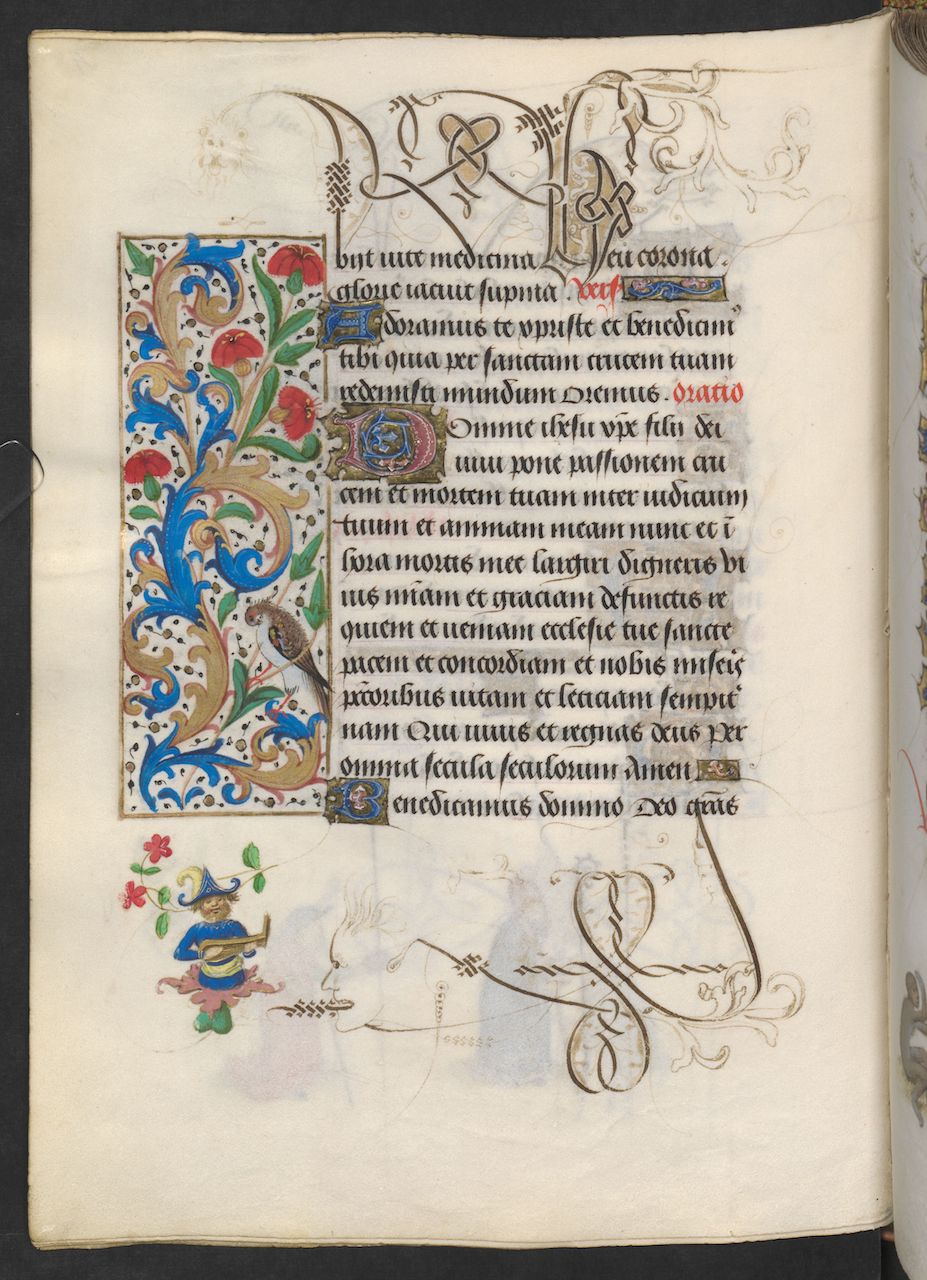 bijt vite medicina Heu corona .
glorie iacuit supina . vers
Adoramus te xpriste et benedicim⁹
tibi quia per sanctam crucem tuam
redemisti mundum Oremus . oratio
Domine ihesu xp̄e filii dei
viui pone passionem cru
cem et mortem tuam inter iudicium
tuum et animam meam nunc et ī
hora mortis mee largiri digneris vi
uis mīam et graciam defunctis re
quiem et ueniam ecclesie tue sancte
pacem et concordiam et nobis miseris
pc̄toribus uitam et leticiam sempit̉
nam Qui viuis et regnas deus Per
omnia secula seculorum Amen
Benedicamus domino Deo gr̄as